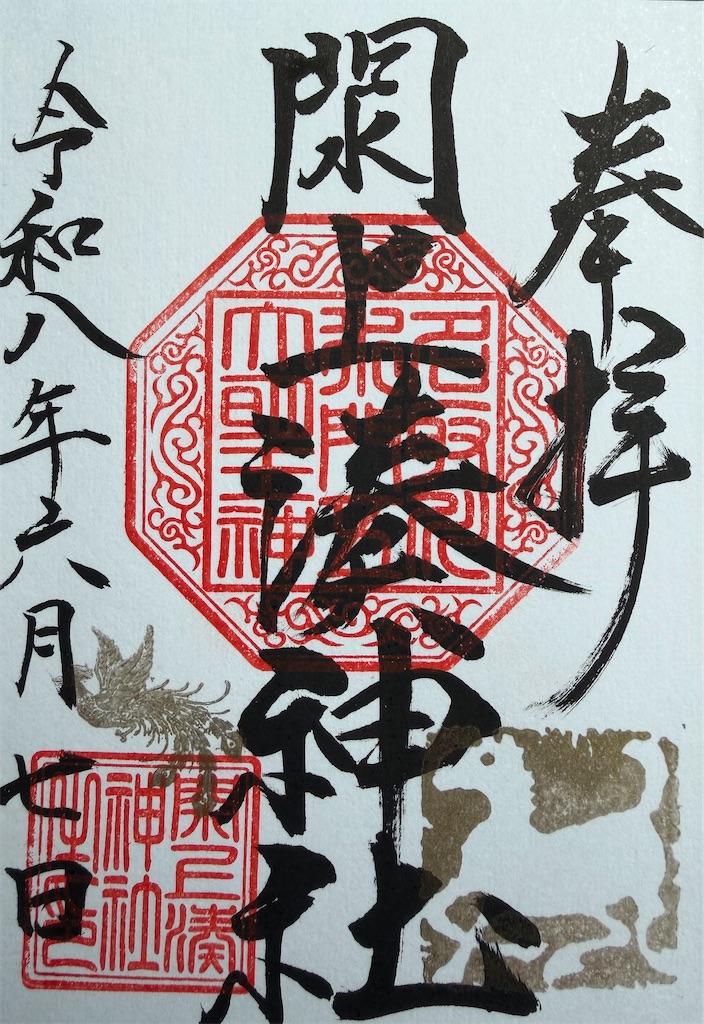 奉拝
閖上湊神社
令和八年六月七日
閖上湊
神社